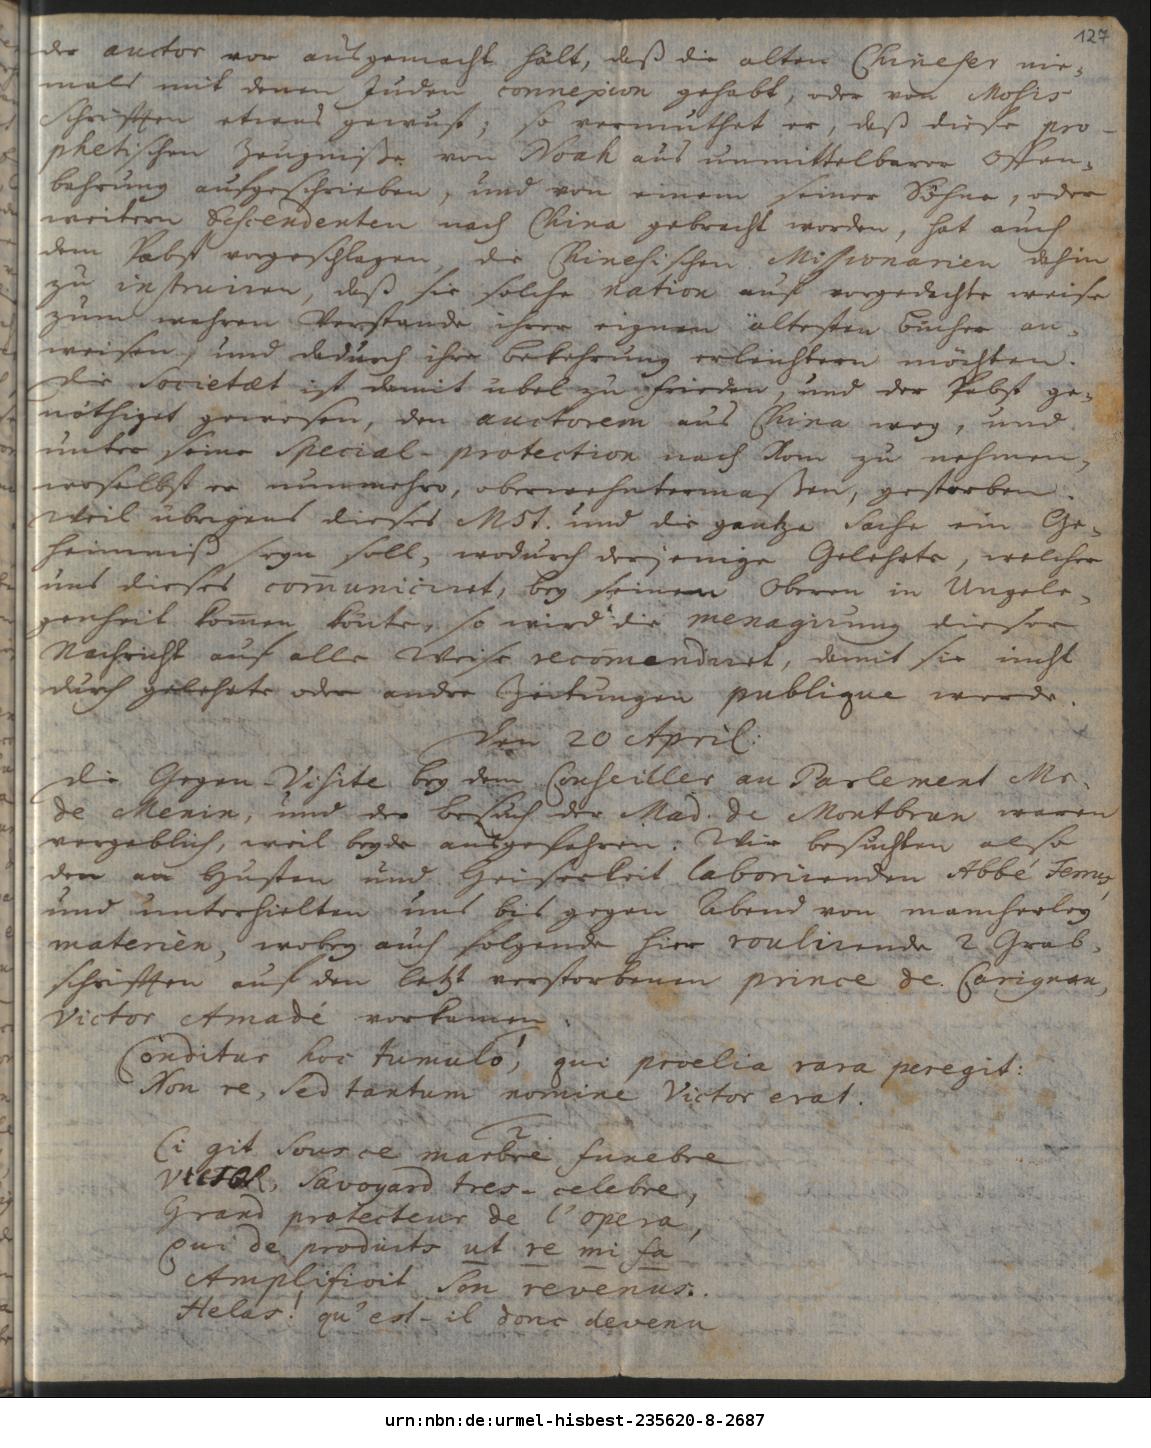 127
der auctor vor ausgemacht hält, daß die alten Chineser nie-
mals mit denen Juden connexion gehabt, oder von Mosis
Schrifften etwas gewust; so vermuthet er, daß diese pro-
phetischen Zeugniße von Noah aus unmittelbarer Offen-
bahrung aufgeschrieben, und von einem seiner Söhne, oder
weitern Descendenten nach China gebracht worden, hat auch
dem Pabst vorgeschlagen, die Chinesischen Missionarien dahin
zu instruiren, daß sie solche nation auf vorgedachte weise
zum wahren Verstande ihrer eignen ältesten Bücher an-
weisen, und dadurch ihre bekehrung erleichtern möchten.
Die Societæt ist damit übel zu frieden, und der Pabst ge-
nöthiget gewesen, den auctorem aus China weg, und
unter seine special-protection nach Rom zu nehmen,
woselbst er nunmehro, oberwehntermaßen, gestorben.
Weil übrigens dieses MSt. und die gantze Sache ein Ge-
heimniß seyn soll, wodurch derjenige Gelehrte, welcher
uns dieses com̄uniciret, bey seinen Oberen in Ungele-
genheit kom̄en kön̄te, so wird die menagirung dieser
Nachricht auf alle Weise recom̄endiret, damit sie nicht
durch gelehrte oder andre Zeitungen publique werde.
Den 20 April:
Die Gegen-Visite bey dem Conseiller au Parlement Mr.
de Menin, und der besuch der Mad. de Montbrun waren
vergeblich, weil beyde ausgefahren. Wir besuchten also
den an Husten und Heiserkeit laborirenden Abbé
und unterhielten uns bis gegen Abend von mancherley
materien, wobey auch folgende hier roulirende 2 Grab-
schrifften auf den letzt verstorbenen prince de Carignan,
Victor Amadé vorkamen.
Conditur hoc tumulo, qui proelia rara peregit:
Non re, sed tantum nomine Victor erat.
2
Ci git sous ce marbre funebre
VICTOR, Savoyard tres-celebre,
Grand protecteur de l'opera,
Qui de produits ut re mi fa
Amplifioit son revenus.
Helas! qu'est-il donc devenu
urn:nbn:de:urmel-hisbest-235620-8-2687